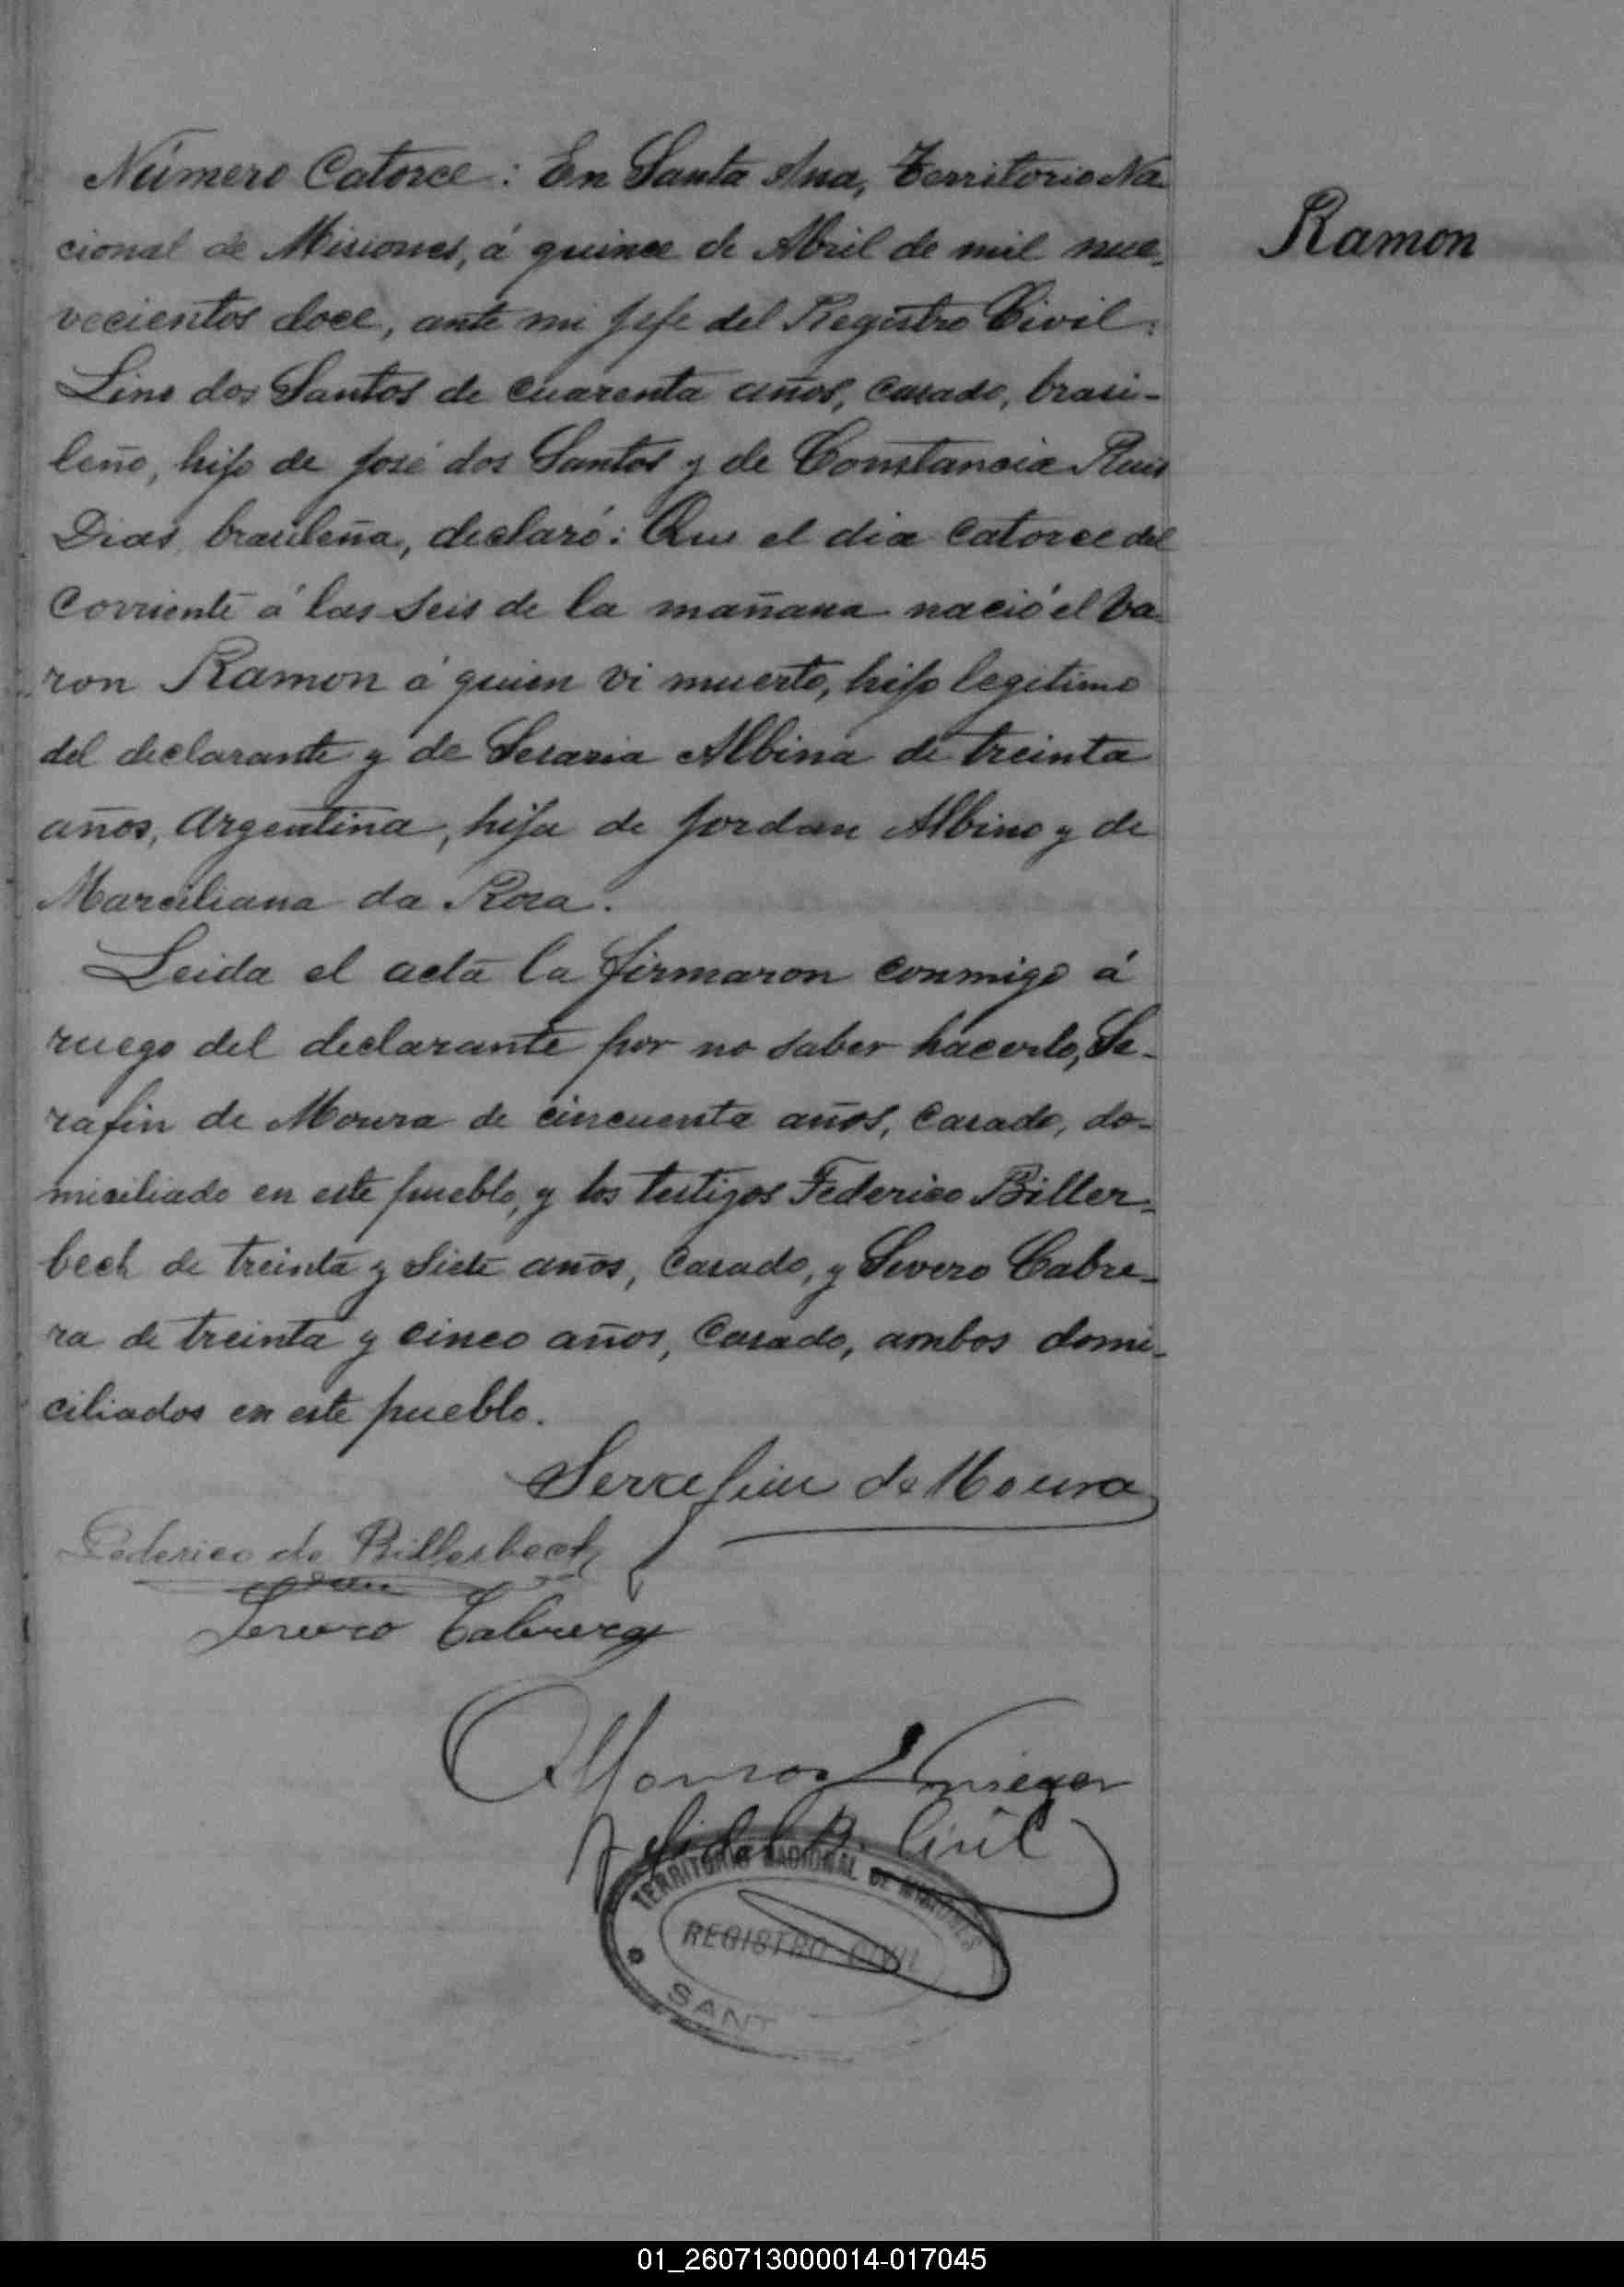 Número Catorce: En Santa Ana, Territorio Na-
cional de Misiones, á quince de Abril de mil nue-
vecientos doce, ante mi Jefe del Registro Civil:
Lino dos Santos de cuarenta años, casado, brasi-
leño, hijo de José dos Santos y de Constancia Ruis
Dias, brasileña, declaró: Que el dia catorce del
corriente á las seis de la mañana nació el va-
ron Ramon á quien vi muerto, hijo legitimo
del declarante y de Albina de treinta
años, Argentina, hija de Jordan Albino y de
Marciliana da Rosa.
Leida el acta la firmaron conmigo á
ruego del declarante por no saber hacerlo, Se-
rafin de Moura de cincuenta años, casado, do-
miciliado en este pueblo, y los testigos Federico Biller-
beck de treinta y siete años, casado, y Severo Cabre-
ra de treinta y cinco años, casado, ambos domi-
ciliados en este pueblo.
Ramon
Serrafim de Moura
Federico de Billerbeck
Severo Cabrera
Alfonso
Jefe del R. Civil
TERRITORIO NACIONAL DE MISIONES
REGISTRO CIVIL
SANT
01_260713000014-017045